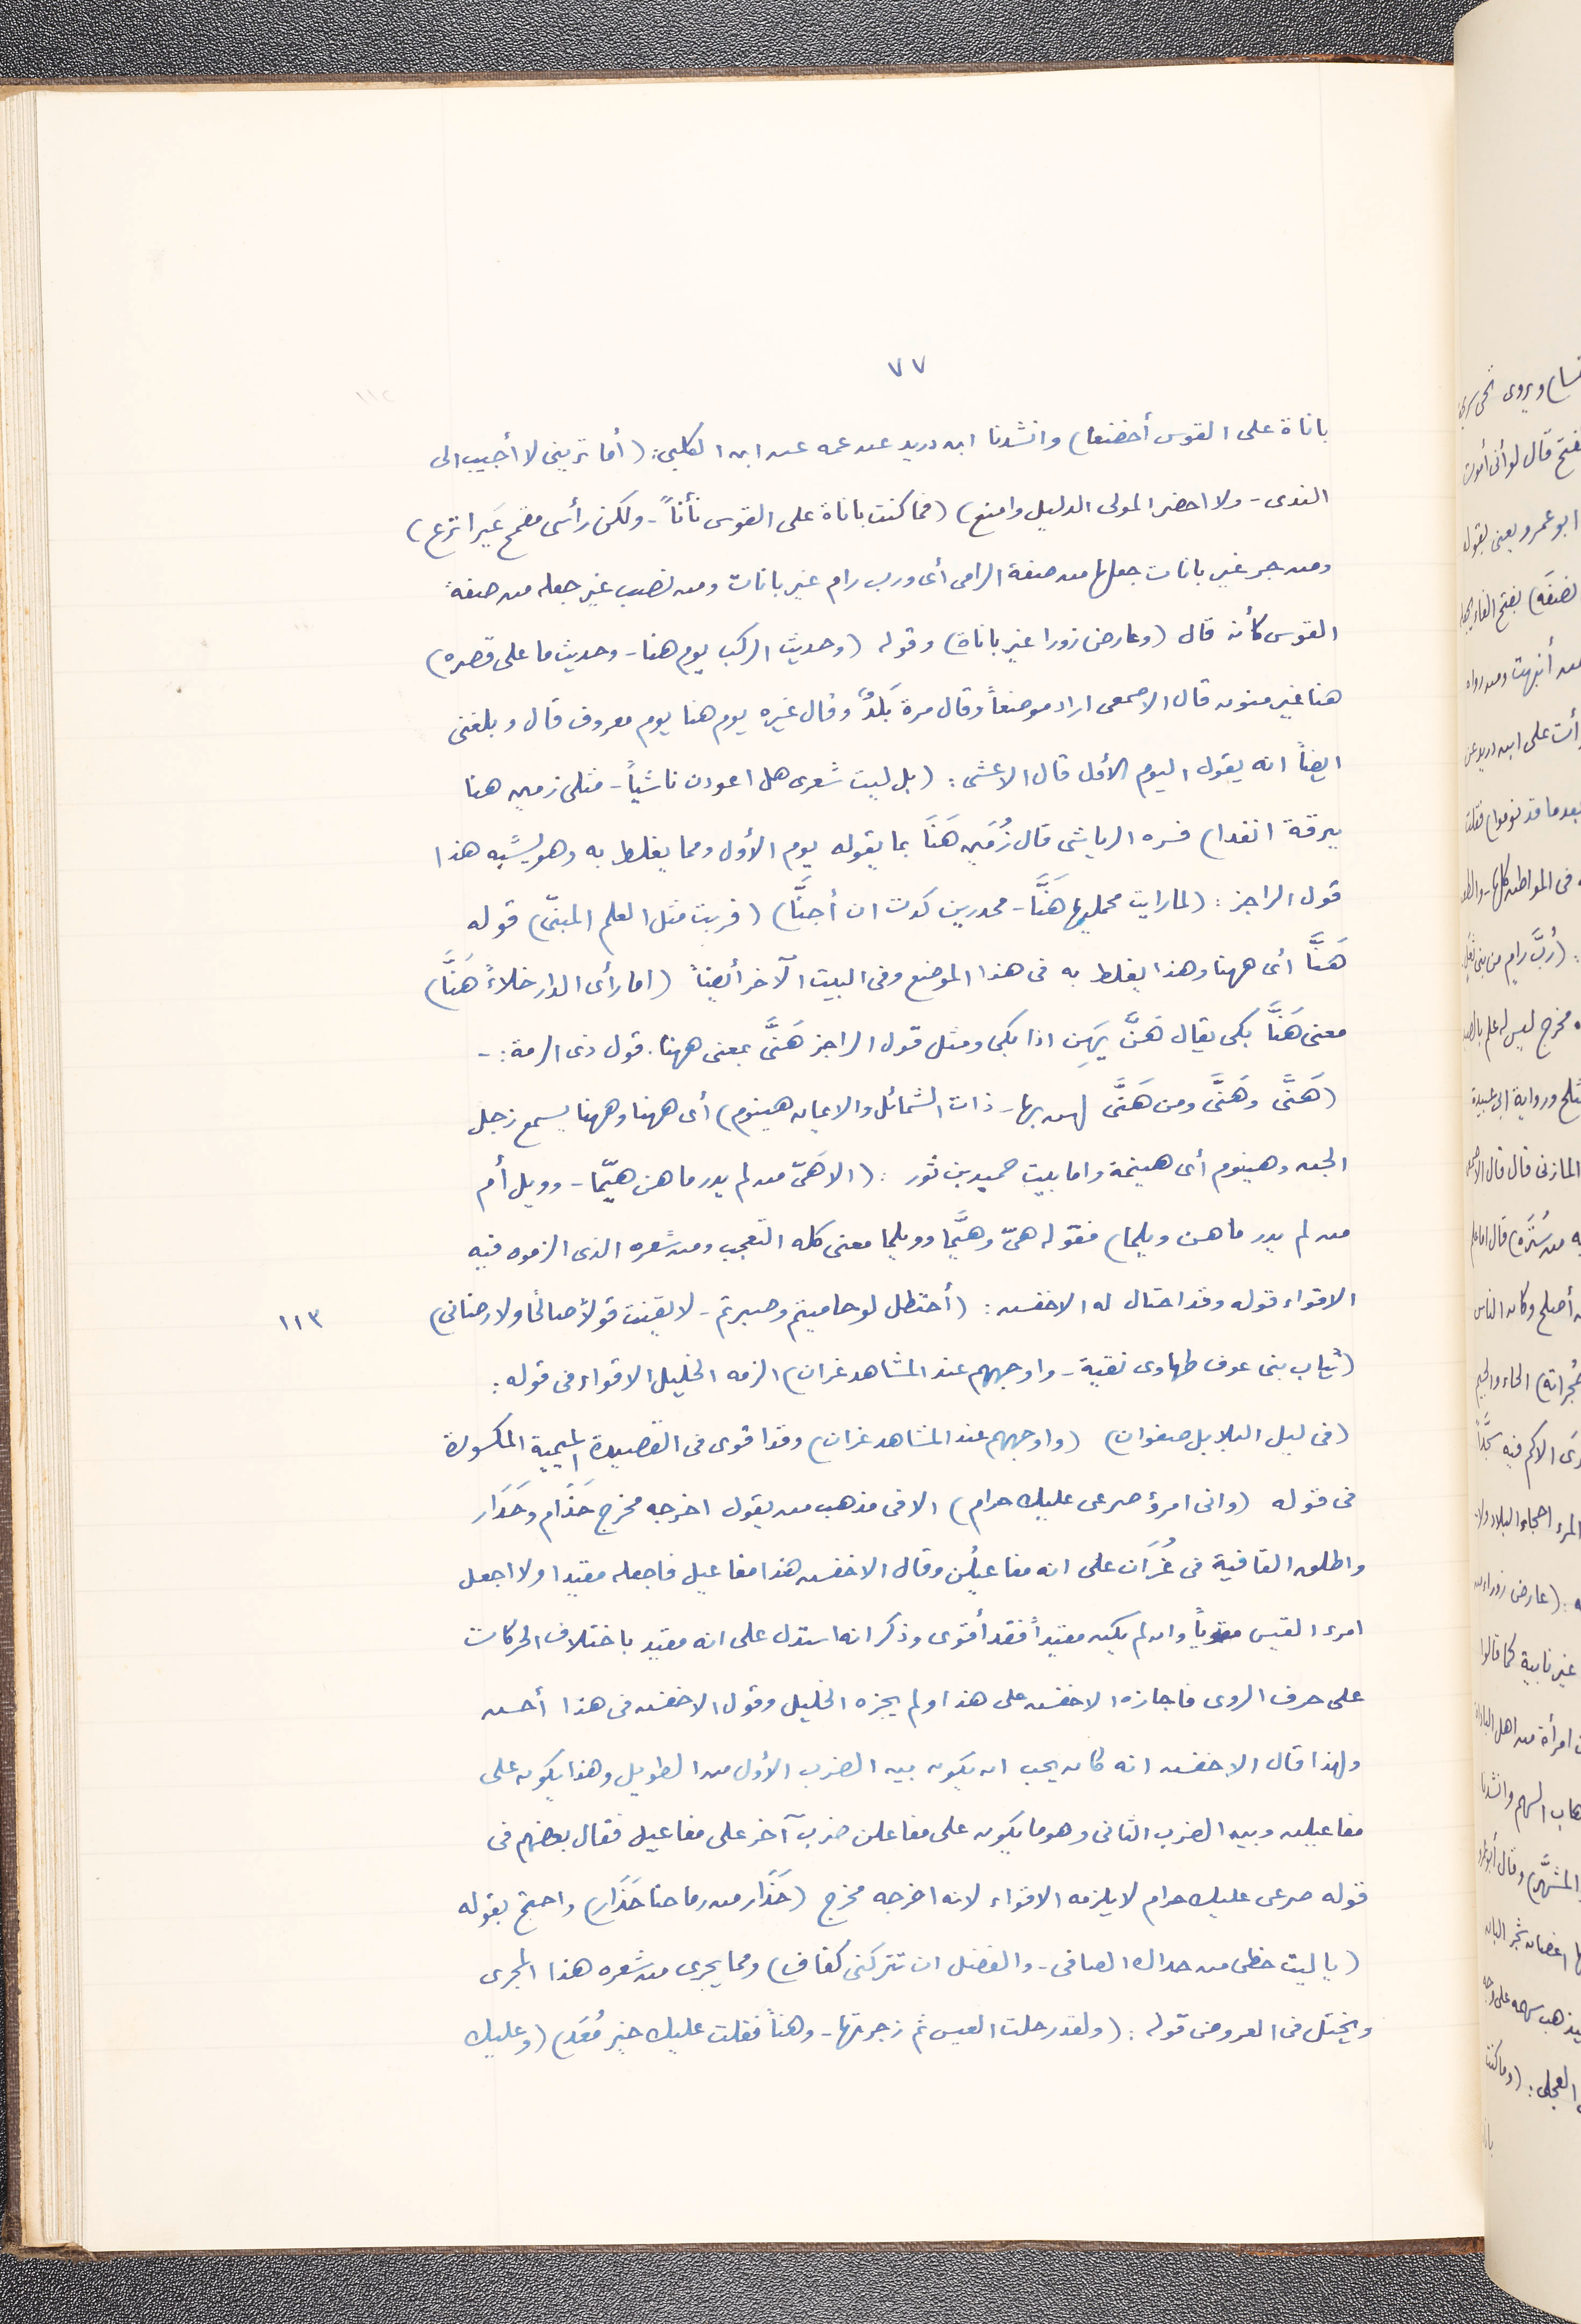 ٧٧
باناة على القوس أخضنعا) وانشدنا ابن دريد عن عمه عن ابن الكلبى: (أما ترينى لا أجيب الى
الندى - ولا احضر المولى الدليل وامنع) (فما كنت باناة على القوس نأنأً - ولكن رأسى مفمح غير انزع)
ومن جر غير باناة جعلها من صفة الرامى أى ورب رام غير باناة ومن نصب غير جعله من صفة
القوس كأنه قال (وعارض زورا غير باناة) وقوله (وحديث الركب يوم هنا - وحديث ما على قصره)
هنا غير منون قال الاصمعى اراد موضعاً وقال مرة بَلَدٌ وقال غيره يوم هنا يوم معروف قال وبلغنى
ايضاً انه يقول اليوم الأول قال الاعشى: (بل ليت شعرى هل اعودن ناشياً - مثلى زمين هنا
ببرقة انقدا) فسره الرياشى قال زُمَين هَنَا بما يقوله يوم الأول ومما يغلط به وهو يشبه هذا
قول الراجز: (لما رايت محمليها هَنَّا - محدرين كدت ان أجنَّا) (قربت مثل العلم المبنّى) قوله
هَنَّا أى ههنا وهذا يغلط به فى هذا الموضع وفى البيت الآخر أيضاً (اما رأى الدار خلاءً هَنَّا)
معنى هَنَّا بكى يقال هَنَّ يَهِن اذا بكى ومثل قول الراجز هَنَّى بمعنى ههنا. قول ذى الرمة: -
(هَنَّى وهَنَّى ومن هَنَّى لهن بها - ذات الشمائل والايمان هينوم) أى ههنا وههنا يسمع زجل
الجن وهينوم أى هينمة واما بيت حميد بن ثور: (الا هَىّ من لم يدر ما هن هيّما - وويل أم
من لم يدر ما هن ويلما) فقوله هىّ وهيَّما وويلما معنى كله التعجب ومن شعره الذى الزموه فيه
الاقواء قوله وقد احتال له الاخفش: (أحنظل لو حاميتم وصبرتم - لا يقينت قولاً صالحا ولا رضانى) ١١٣
(ثياب بنى عوف طهاوى نقية - واوجههم عند المشاهد غران) الزمه الخليل الاقواء فى قوله:
(فى ليل البلابل صفوان) (واوجههم عند المشاهد غران) وقد اقوى فى القصيدة الميمية المكسورة
فى قوله (وانى امرؤ صرعى عليك حرام) الا فى مذهب من يقول اخرجه مخرج حَذَام وحَدَار
واطلق القافية فى غُرَان على انه مفاعيلُن وقال الاخفش هذا مفاعيل فاجعله مقيدا ولا اجعل
امرء القيس مقوياً وان لم يكن مقيداً فقد أقوى وذكر انه استدل على انه مقيد باختلاف الحركات
على حرف الروى فاجازه الاخفش على هذا ولم يجزه الخليل وقول الاخفش فى هذا أحسن
ولهذا قال الاخفش انه كان يجب ان يكون بين الضرب الأول من الطويل وهذا يكون على
مفاعيلن وبين الضرب الثانى وهو ما يكون على مفاعلن ضرب آخر على مفاعيل فقال بعضهم فى
قوله صرعى عليك حرام لا يلزمه الاقواء لانه اخرجه مخرج (حَذَار من رماحنا حَذَار) واحتج بقوله
(يا ليت حظى من جداك الصافى - والفضل ان تتركنى كفاف) ومما يجرى من شعره هذا المجرى
ويختل فى العروض قوله: (ولقد رحلت العيس ثم زجرتها - وهناً فقلت عليك خير مُعَد) (وعليك